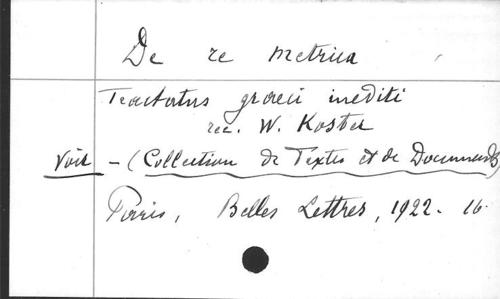 De re metrica
Tractatus graeci inediti
rec. W. Koster
Voir - (Collection de Textes et de Documents)
Paris, Belles Lettres, 1922. 16